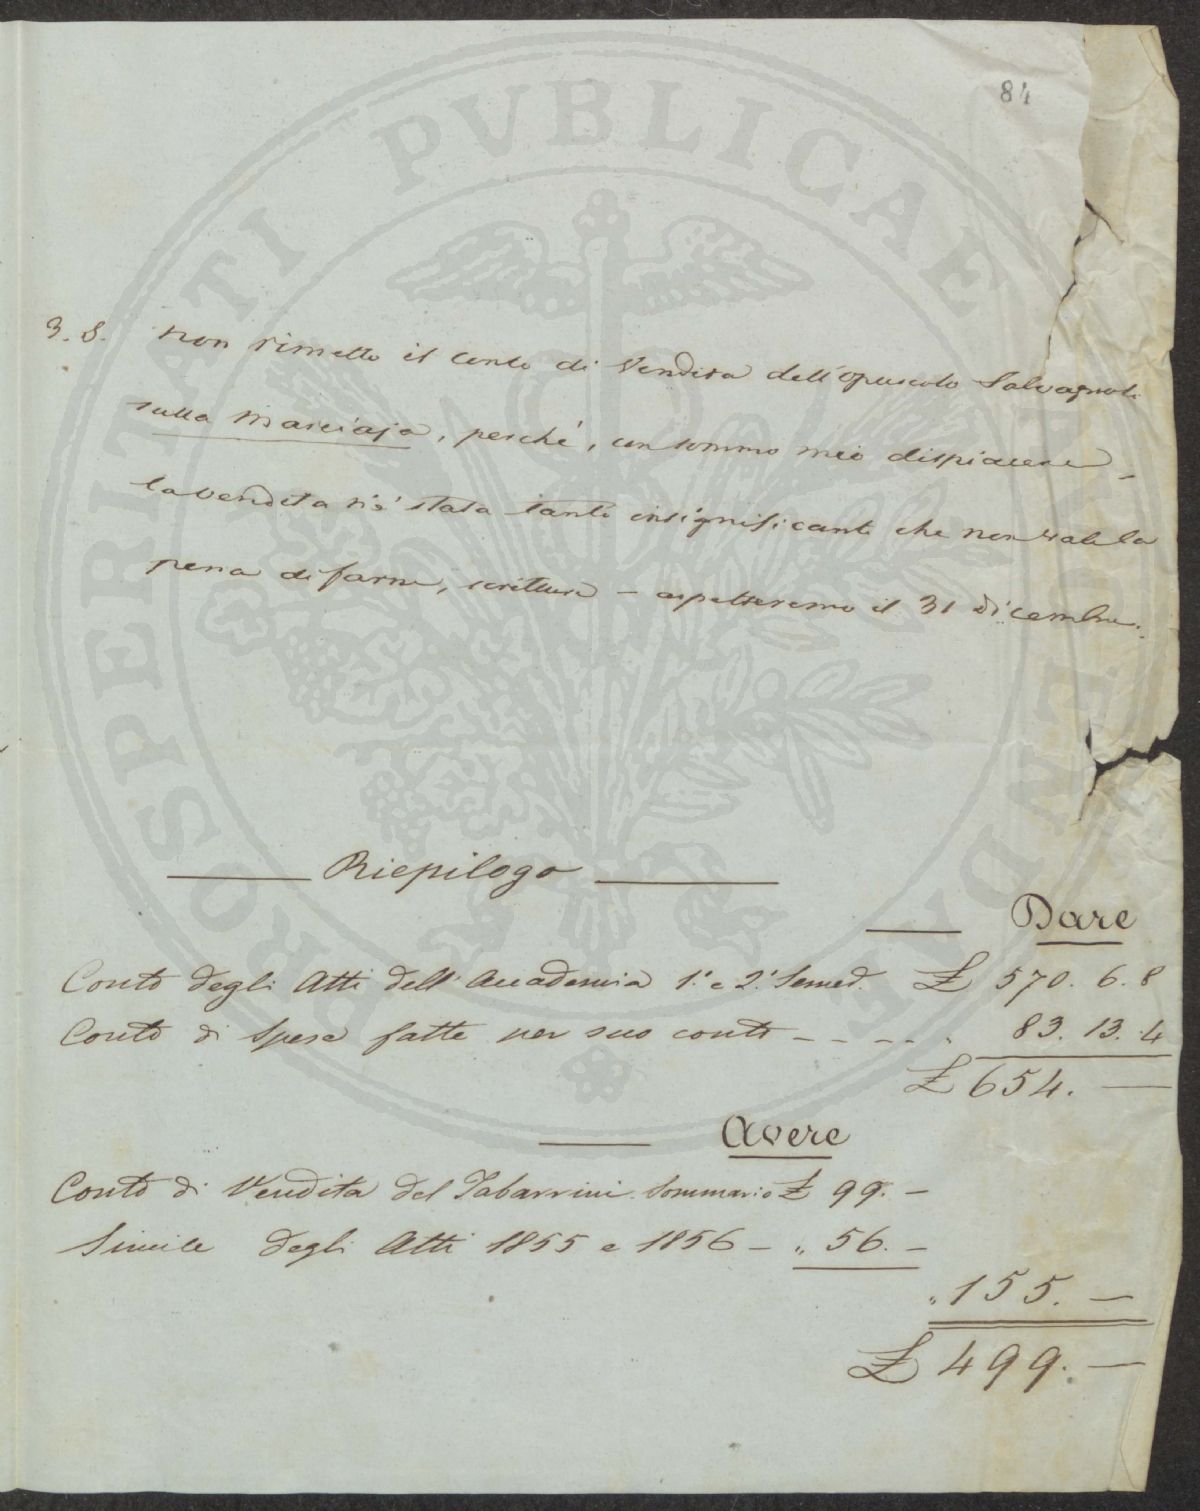 84
P. S. Non rimetto il Conto di Vendita dell'opuscolo Salvagnoli
sulla Marciaja, perché, con sommo mio dispiacere
la vendita n'è stata tanto insignificante che non vale la
pena di farne, scrittura – aspetteremo il 31 Dicembre.
Riepilogo
Dare
Conto degli Atti dell'Accademia 1.° e 2.° Semed. £ 570. 6. 8
Conto di Spese fatte per suo conto – – – – – 83. 13. 4
£ 654. —
Avere
Conto di Vendita del Tabarrini Sommario £ 99. –
Simile degli Atti 1855 e 1856 – „ 56. –
„ 155. —
£ 499. —
PROSPERITATI PVBLICAE AVGENDAE